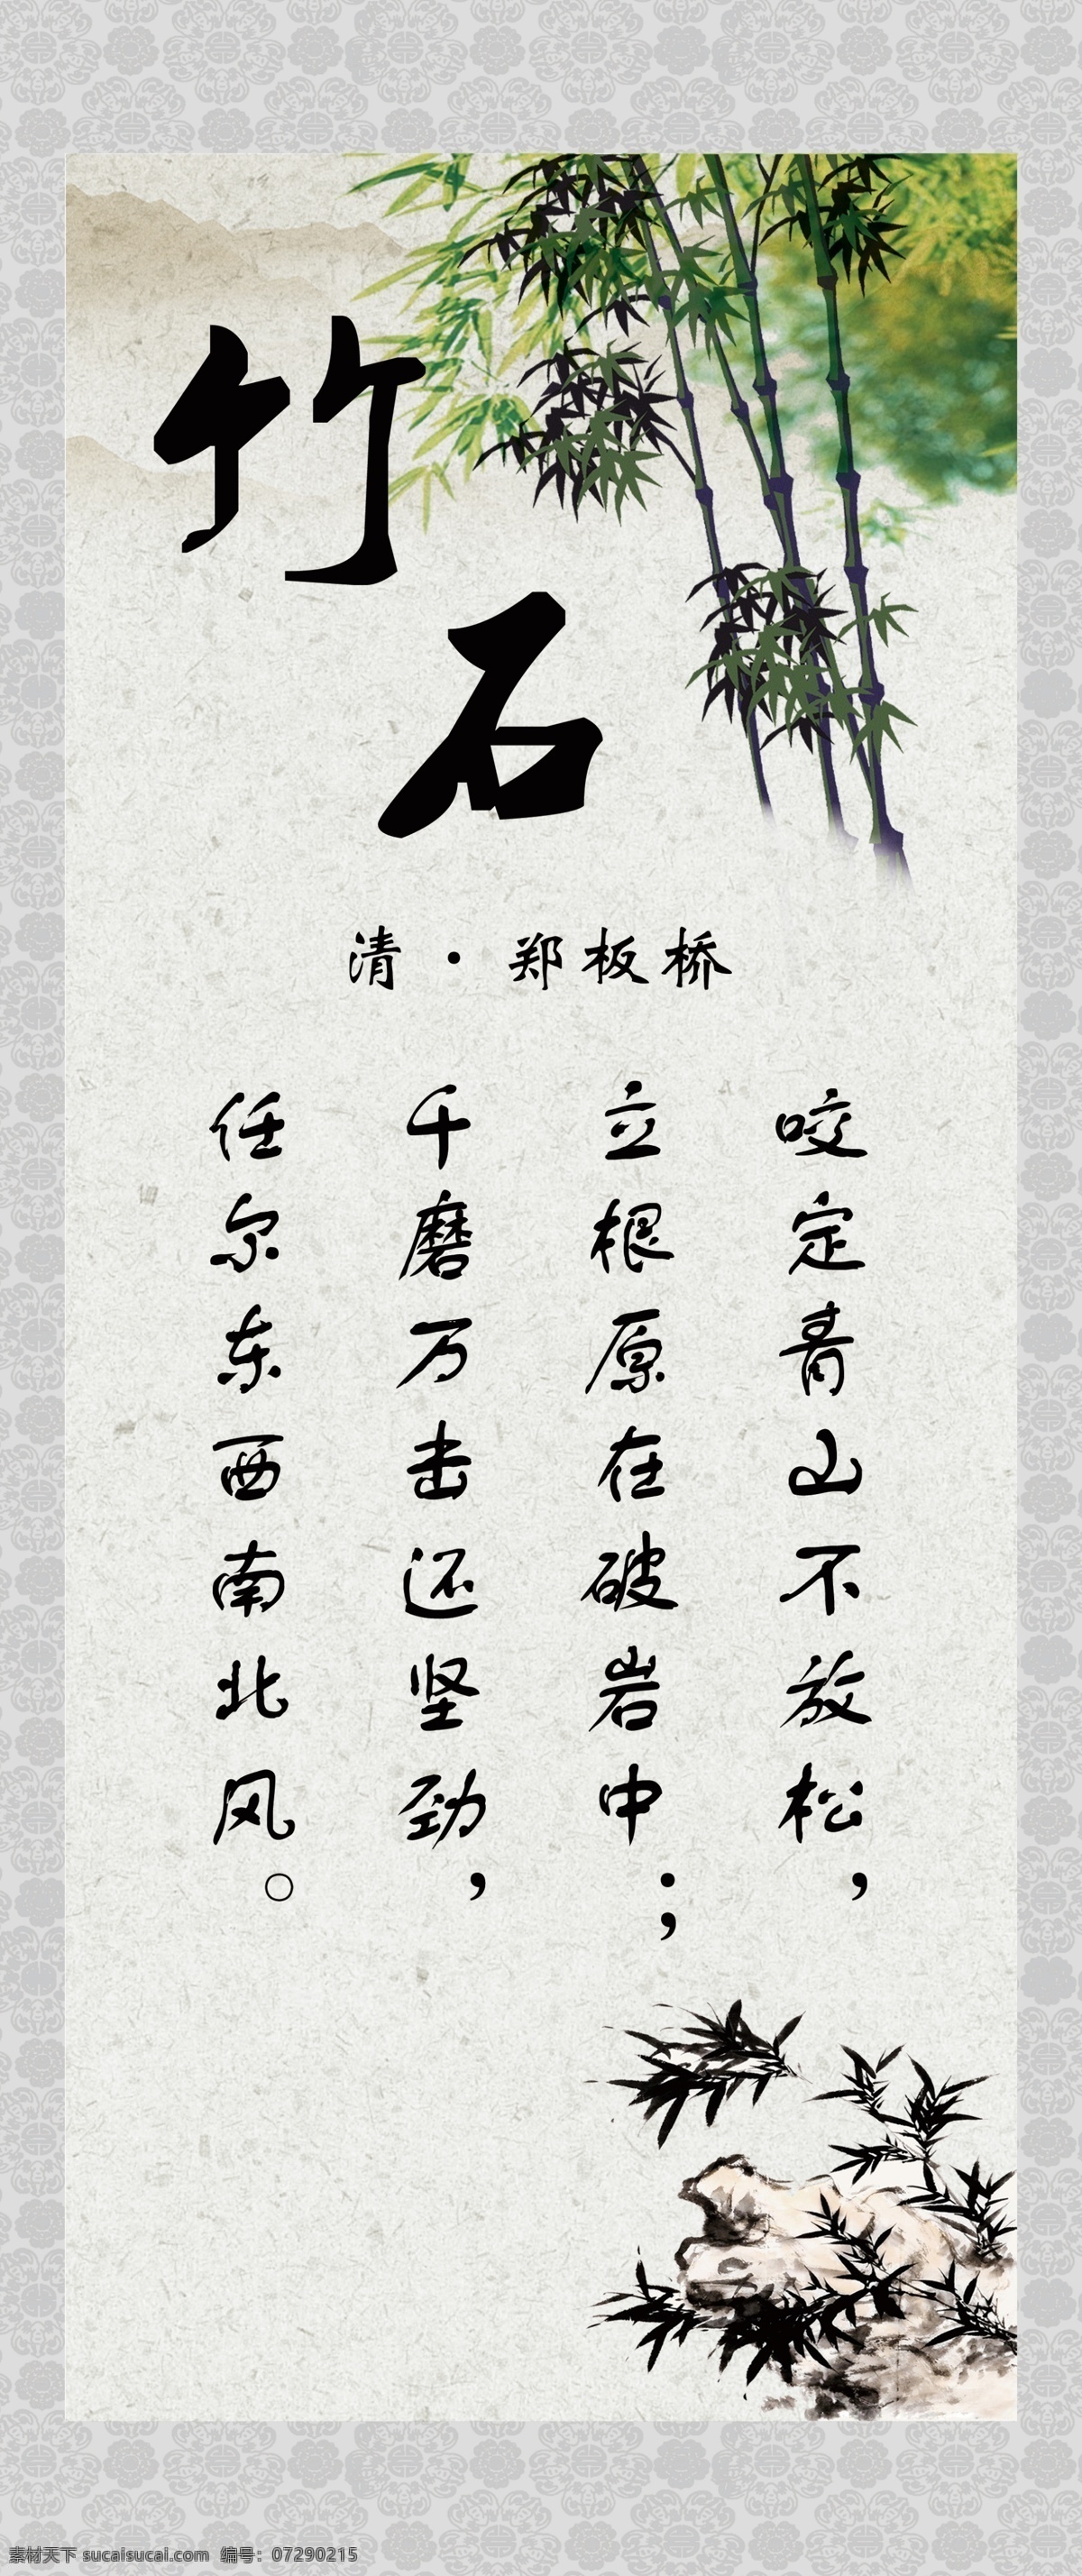 竹
石
清·郑板桥
咬定青山不放松，
立根原在破岩中；
千磨万击还坚劲，
任尔东西南北风。
素材天下 sucaisucai.com 编号：07290215